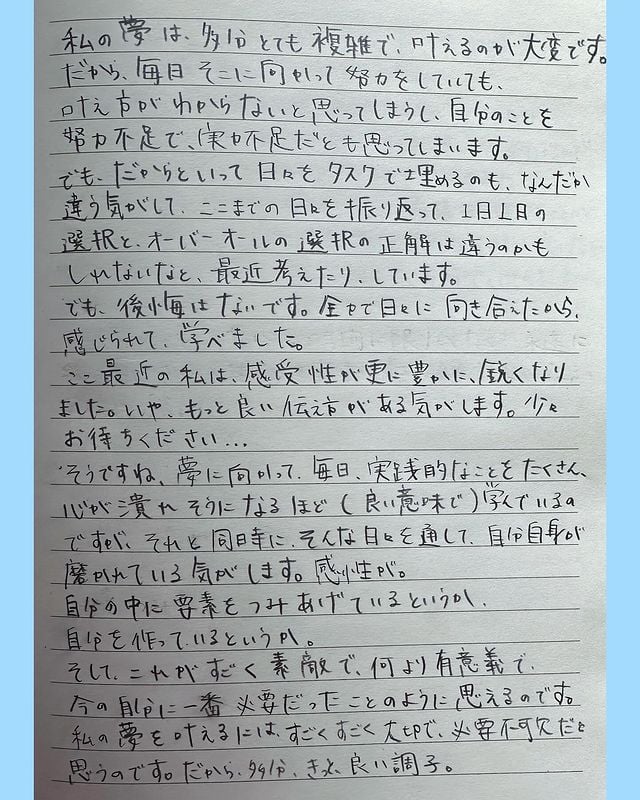 私の夢は、多分とても複雑で、叶えるのが大変です。
だから、毎日そこに向かって努力をしていても、
叶え方がわからないと思ってしまうし、自分のことを
努力不足で、実力不足だとも思ってしまいます。
でも、だからといって日々をタスクで埋めるのも、なんだか
違う気がして、ここまでの日々を振り返って、1日1日の
選択と、オーバーオールの選択の正解は違うのかも
しれないなと、最近考えたり、しています。
でも、後悔はないです。全力で日々に向き合えたから、
感じられて、学べました。
ここ最近の私は、感受性が更に豊かに、鋭くなり
ました。いや、もっと良い伝え方がある気がします。少々
お待ちください...
そうですね、夢に向かって、毎日、実践的なことをたくさん、
心が潰れそうになるほど(良い意味で)学んでいるの
ですが、それと同時に、そんな日々を通して、自分自身が
磨かれている気がします。感性が。
自分の中に要素をつみあげているというか、
自分を作っているというか。
そして、これがすごく素敵で、何より有意義で、
今の自分に一番必要だったことのように思えるのです。
私の夢を叶えるには、すごくすごく大切で、必要不可欠だと
思うのです。だから、多分、きっと、良い調子。